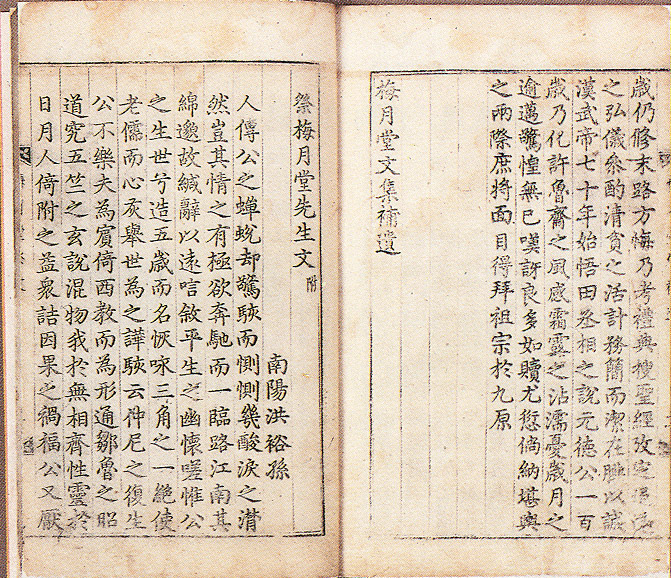 歲仍修末路方悔乃考禮典搜聖經攷定
之弘儀參酌清貧之活計務簡而潔在腆以誠
漢武帝七十年始悟田丞相之說元德公一百
歲乃化許魯齋之風感霜露之沾濡憂歲月之
逾邁驚惶無已嘆訝良多如贖尤愆倘納堪輿
之兩際庶將面目得拜祖宗於九原
梅月堂文集補遺
祭梅月堂先生文 附
南陽洪裕孫
人傳公之蟬蛻却驚駭而惻惻幾酸淚之潸
然豈其情之有極欲奔馳而一臨路江南其
綿邈故緘辭以遠唁敘平生之幽懷嗟惟公
之生世兮造五歲而名恢咏三角之一絶使
老儒而心灰舉世為之譁駭云仲尼之復生
公不樂夫為賓倚西教而為形通鄒魯之昭
道究五竺之玄說混物我於無相齊性靈於
日月人倚附之益衆詰因果之禍福公又厭